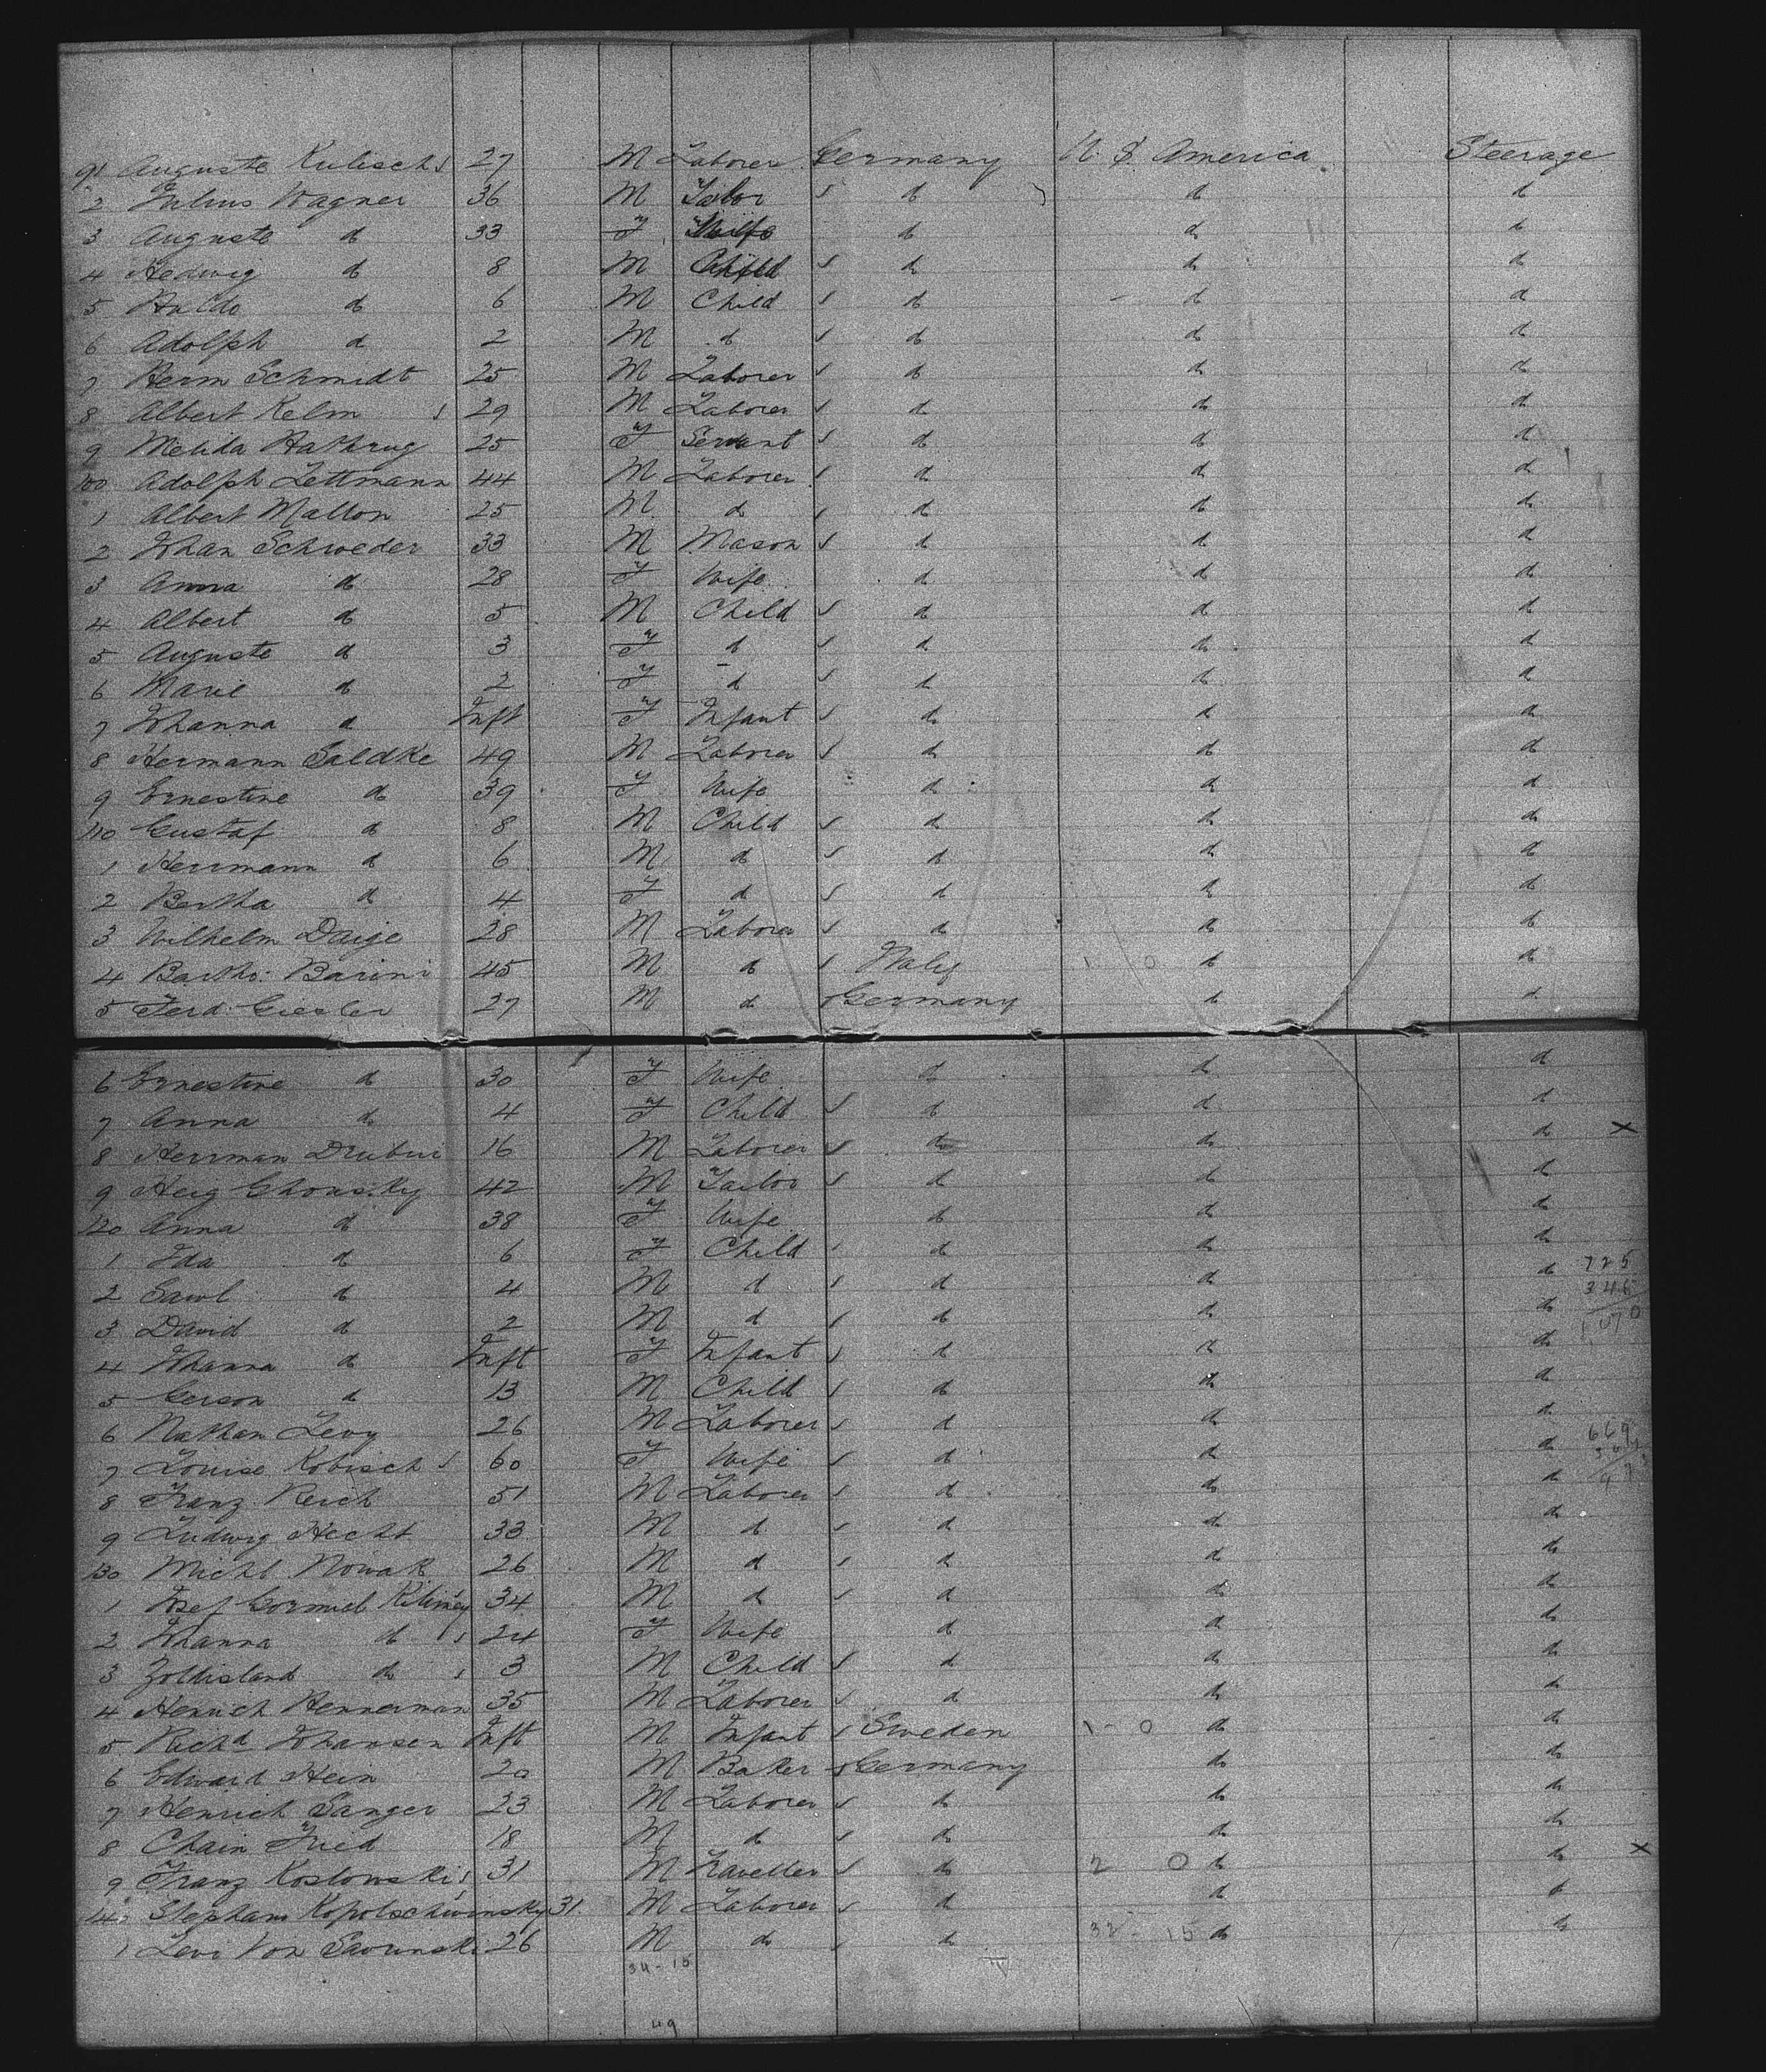 91 Auguste Kulisch s 27 M Laborer Germany U. S. America Steerage
2 Julius Wagner 36 M Tailor s d d d
3 Auguste d 33 F Wife d d d
4 Hedwig d 8 M Child s d d d
5 d 6 M Child s d d d
6 Adolph d 2 M d s d d d
7 Herm Schmidt 25 M Laborer s d d d
8 Albert Kelm s 29 M Laborer s d d d
9 Melida Hathrug 25 F Servant s d d d
100 Adolph Lettmann 44 M Laborer s d d d
1 Albert Malton 25 M d s d d d
2 Johan Schroeder 33 M Mason s d d d
3 Anna d 28 F Wife d d d
4 Albert d 5 M Child s d d d
5 Auguste d 3 F d s d d d
6 Marie d 2 F d s d d d
7 Johanna d Inft F Infant s d d d
8 Hermann Saldke 49 M Laborer s d d d
9 Ernestine d 39 F Wife d d d
110 Gustaf d 8 M Child s d d d
1 Herrmann d 6 M d s d d d
2 Bertha d 4 F d s d d d
3 Wilhelm Daige 28 M Laborer s d d d
4 Bartho: Barini 45 M d s Italy 1 0 d d
5 Ferd. Giesler 27 M d s Germany d d
6 Ernestine d 30 F Wife d d d
7 Anna d 4 F Child s d d d
8 Herrman Drubui 16 M Laborer s d d d x
9 Heig Ghousky 42 M Tailor s d d d
120 Anna d 38 F Wife d d d
1 Ida d 6 F Child s d d d
2 Saul d 4 M d s d d d 725
3 David d 2 M d s d d d
4 Johanna d Inft F Infant s d d d
5 Gerson d 13 M Child s d d d
6 Nathan Levy 26 M Laborer s d d d
7 Louise Kobisch s 60 F Wife s d d d
8 Franz Reich 51 M Laborer s d d d
9 Ludwig Hecht 33 M d s d d d
130 Michl Nowak 26 M d s d d d
1 Josef 34 M d s d d d
2 Johanna d s 24 F Wife d d d
3 Zoldisland d s 3 M Child s d d d
4 Henrich Hennerman 35 M Laborer s d d d
5 Richd Johansen Inft M Infant s Sweden 1 - 0 d d
6 Edward Hein 20 M Baker s Germany d d
7 Henrich Sanger 23 M Laborer s d d d
8 Chain Fried 18 M d s d d d
9 Franz Koslowski s 31 M Traveller s d 2 0 d d x
140 Stephans Kopotschwinsky 31 M Laborer s d d d
1 Levi Von Savunski 26 M d s d 32 - 15 d d
34 - 15
49